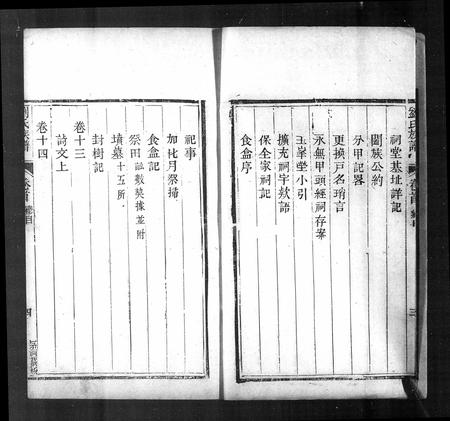 劉氏族譜
卷首
三
祠堂基址詳記
闔族公約
分甲記畧
更換戶名瑣言
永無甲頭經祠存案
玉峯塋小引
擴充祠宇欵語
保全家祠記
食盒序
祀事
加北月祭掃
食盒記
祭田畝數契據並附
墳墓十五所
封樹記
卷十三
詩文上
卷十四
劉氏族譜
卷首
四